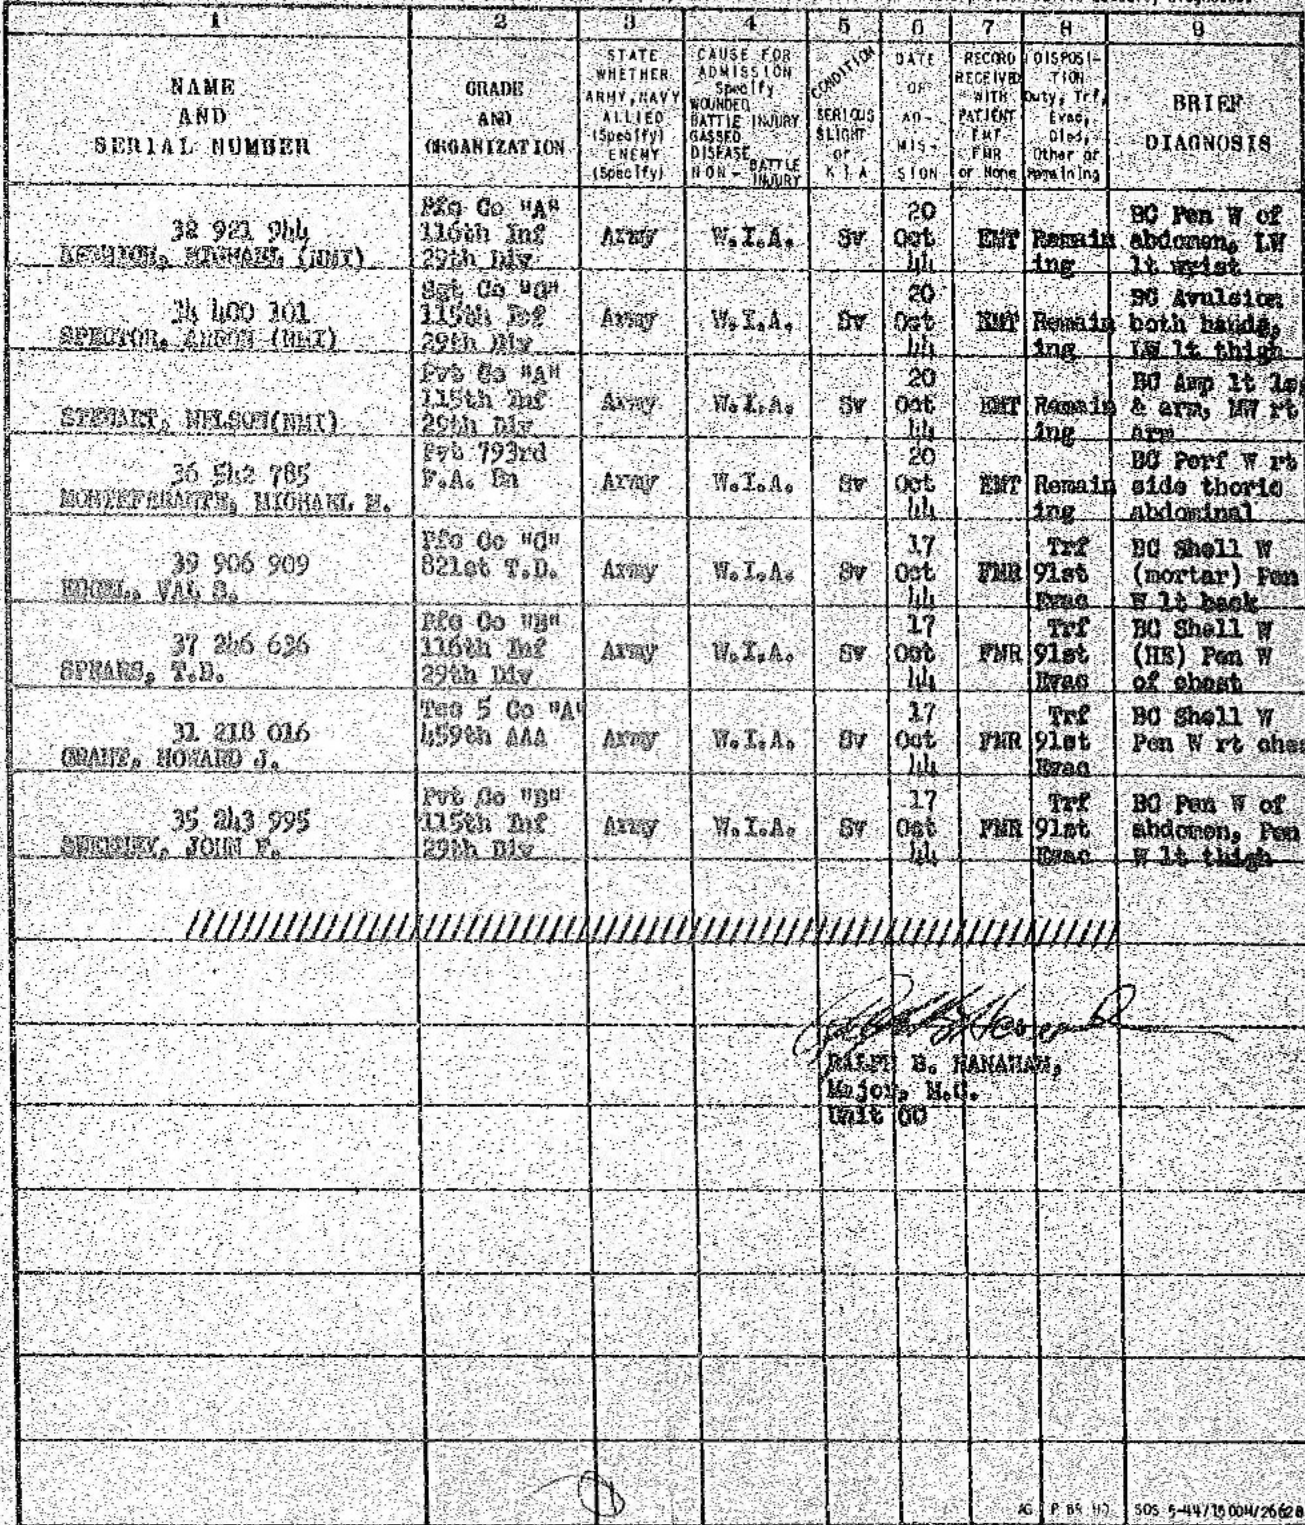 1 2 3 4 5 6 7 8 9
NAME AND SERIAL NUMBER
GRADE AND ORGANIZATION
STATE WHETHER ARMY, NAVY ALLIED (Specify) ENEMY (Specify)
CAUSE FOR ADMISSION Specify WOUNDED BATTLE INJURY GASSED DISEASE NON-BATTLE INJURY
CONDITION SERIOUS SLIGHT or K I A
DATE OF AD-MIS-SION
RECORD RECEIVED WITH PATIENT EMT FMR or None
DISPOSI-TION Duty, Trf, Evac, Died, Other or Remaining
BRIEF DIAGNOSIS
38 921 944
MICHAEL (NMI)
Pfc Co "A"
116th Inf
29th Div
Army W.I.A. Sv
20
Oct
44
EMT
Remain
ing
BC Pen W of
abdomen, LW
lt wrist
34 400 101
SPECTOR, (NMI)
Sgt Co
115th Inf
29th Div
Army W.I.A. Sv
20
Oct
44
EMT
Remain
ing
BC Avulsion
both hands,
LW lt thigh
STEWART, NELSON(NMI)
Pvt Co "A"
115th Inf
29th Div
Army W.I.A. Sv
20
Oct
44
EMT
Remain
ing
BC Amp lt leg
& arm, MW rt
arm
36 542 785
MICHAEL M.
Pvt 793rd
F.A. Bn
Army W.I.A. Sv
20
Oct
44
EMT
Remain
ing
BC Perf W rt
side thoric
abdominal
39 906 909
VAL S.
Pfc Co "C"
821st T.D.
Army W.I.A. Sv
17
Oct
44
FMR
Trf
91st
Evac
BC Shell W
(mortar) Pen
W lt back
37 246 636
SPEARS, T.D.
Pfc Co "B"
116th Inf
29th Div
Army W.I.A. Sv
17
Oct
44
FMR
Trf
91st
Evac
BC Shell W
(HE) Pen W
of chest
31 218 016
HOWARD J.
Tec 5 Co "A"
459th AAA
Army W.I.A. Sv
17
Oct
44
FMR
Trf
91st
Evac
BC Shell W
Pen W rt ches
35 243 995
JOHN F.
Pvt Co "B"
115th Inf
29th Div
Army W.I.A. Sv
17
Oct
44
FMR
Trf
91st
Evac
BC Pen W of
abdomen, Pen
W lt thigh
RALPH B. HANAHAN,
Major, M.C.
Unit CO